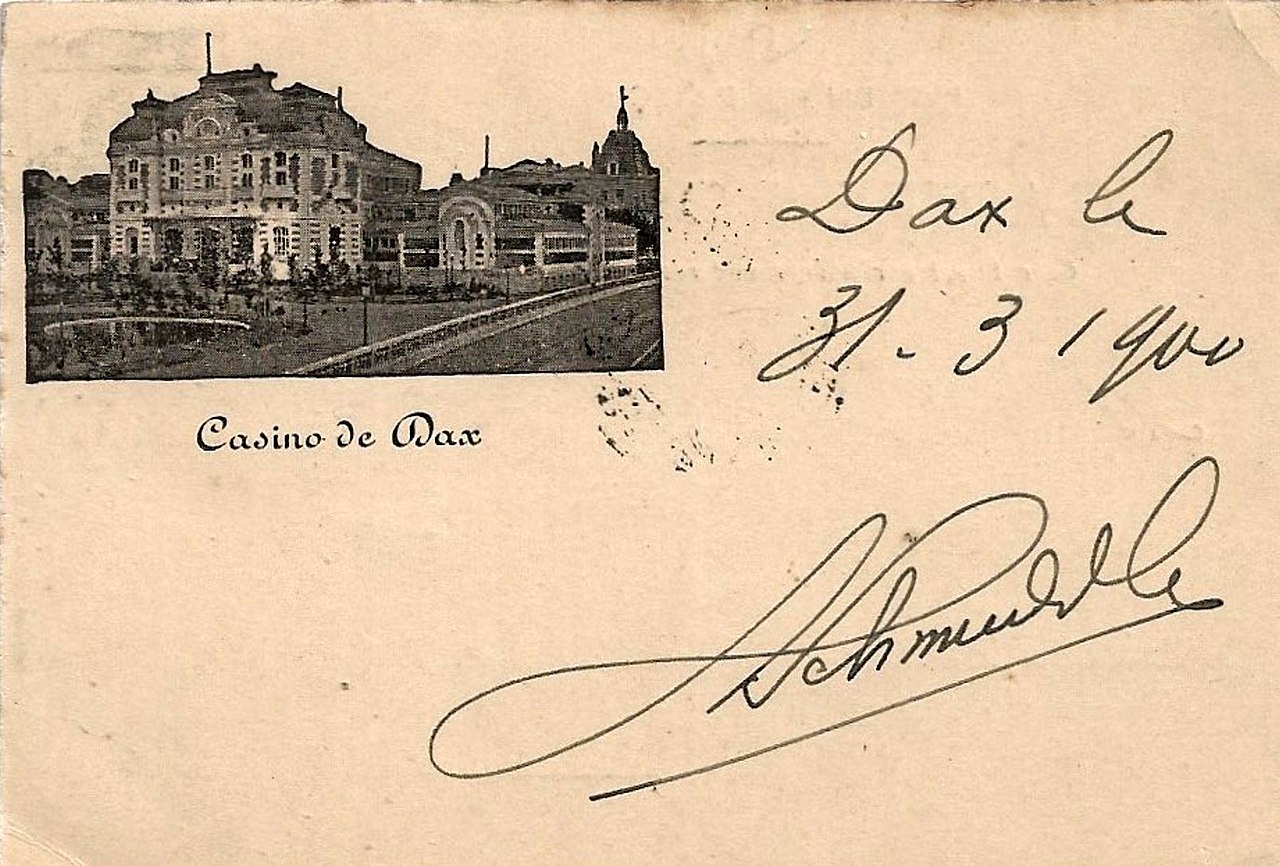 Casino de Dax
Dax le
31 - 3 1900